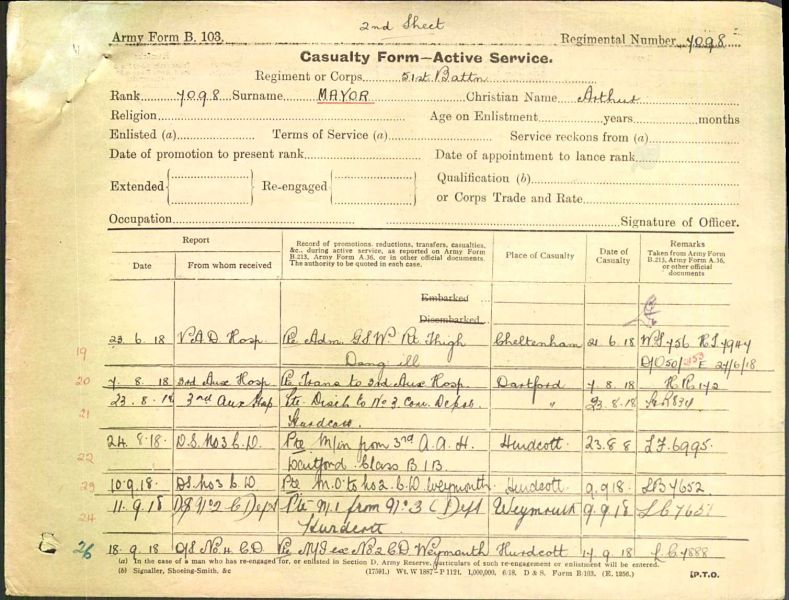 2nd Sheet
Army Form B. 103.
Regimental Number 7098
Casualty Form—Active Service.
Regiment or Corps 51st Battn
Rank 7098 Surname MAYOR Christian Name Arthur
Religion Age on Enlistment years months
Enlisted (a) Terms of Service (a) Service reckons from (a)
Date of promotion to present rank Date of appointment to lance rank
Extended Re-engaged Qualification (b)
or Corps Trade and Rate
Occupation Signature of Officer.
Report Record of promotions, reductions, transfers, casualties, &c., during active service, as reported on Army Form B.213, Army Form A.36, or in other official documents. The authority to be quoted in each case. Place of Casualty Date of Casualty Remarks Taken from Army Form B.213, Army Form A.36, or other official documents
Date From whom received
Embarked
Disembarked
23.6.18 V.A.D. Hosp. Pte Adm. G.S.W. Rt. Thigh Cheltenham 21.6.18 H.S. 7947
19 Dang ill 27/6/18
20 7.8.18 3rd Aux Hosp. Pte Trans to 3rd Aux Hosp. Dartford 7.8.18
23.8.18 3rd Aux Hosp Pte Disch to No 3 Con. Depot. " 23.8.18
21 Hurdcott.
24.8.18. D.S. No 3 C.D. Pte M/in from 3rd A.A.H. Hurdcott 23.8 8 L.F. 6995.
22 Dartford. Class B1B.
23 10.9.18. D.S. No 3 C.D. Pte M.O to No 2. C.D. Weymouth. Hurdcott. 9.9.18. LB 7652
11.9.18 D/S No 2 C Dept Pte M.I from No 3 C Dept Weymouth 9.9.18
24 Hurdcott
26 18.9.18 O/S No 4 C.D. Pte M/I ex No 2 C.D. Weymouth Hurdcott 17.9.18 L.C. 7888
(a) In the case of a man who has re-engaged for, or enlisted in Section D, Army Reserve, particulars of such re-engagement or enlistment will be entered.
(b) Signaller, Shoeing-Smith, &c (17591.) Wt. W 1887—P 1121. 1,000,000. 6/18. D & S. Form B.103. (E. 1256.) [P.T.O.